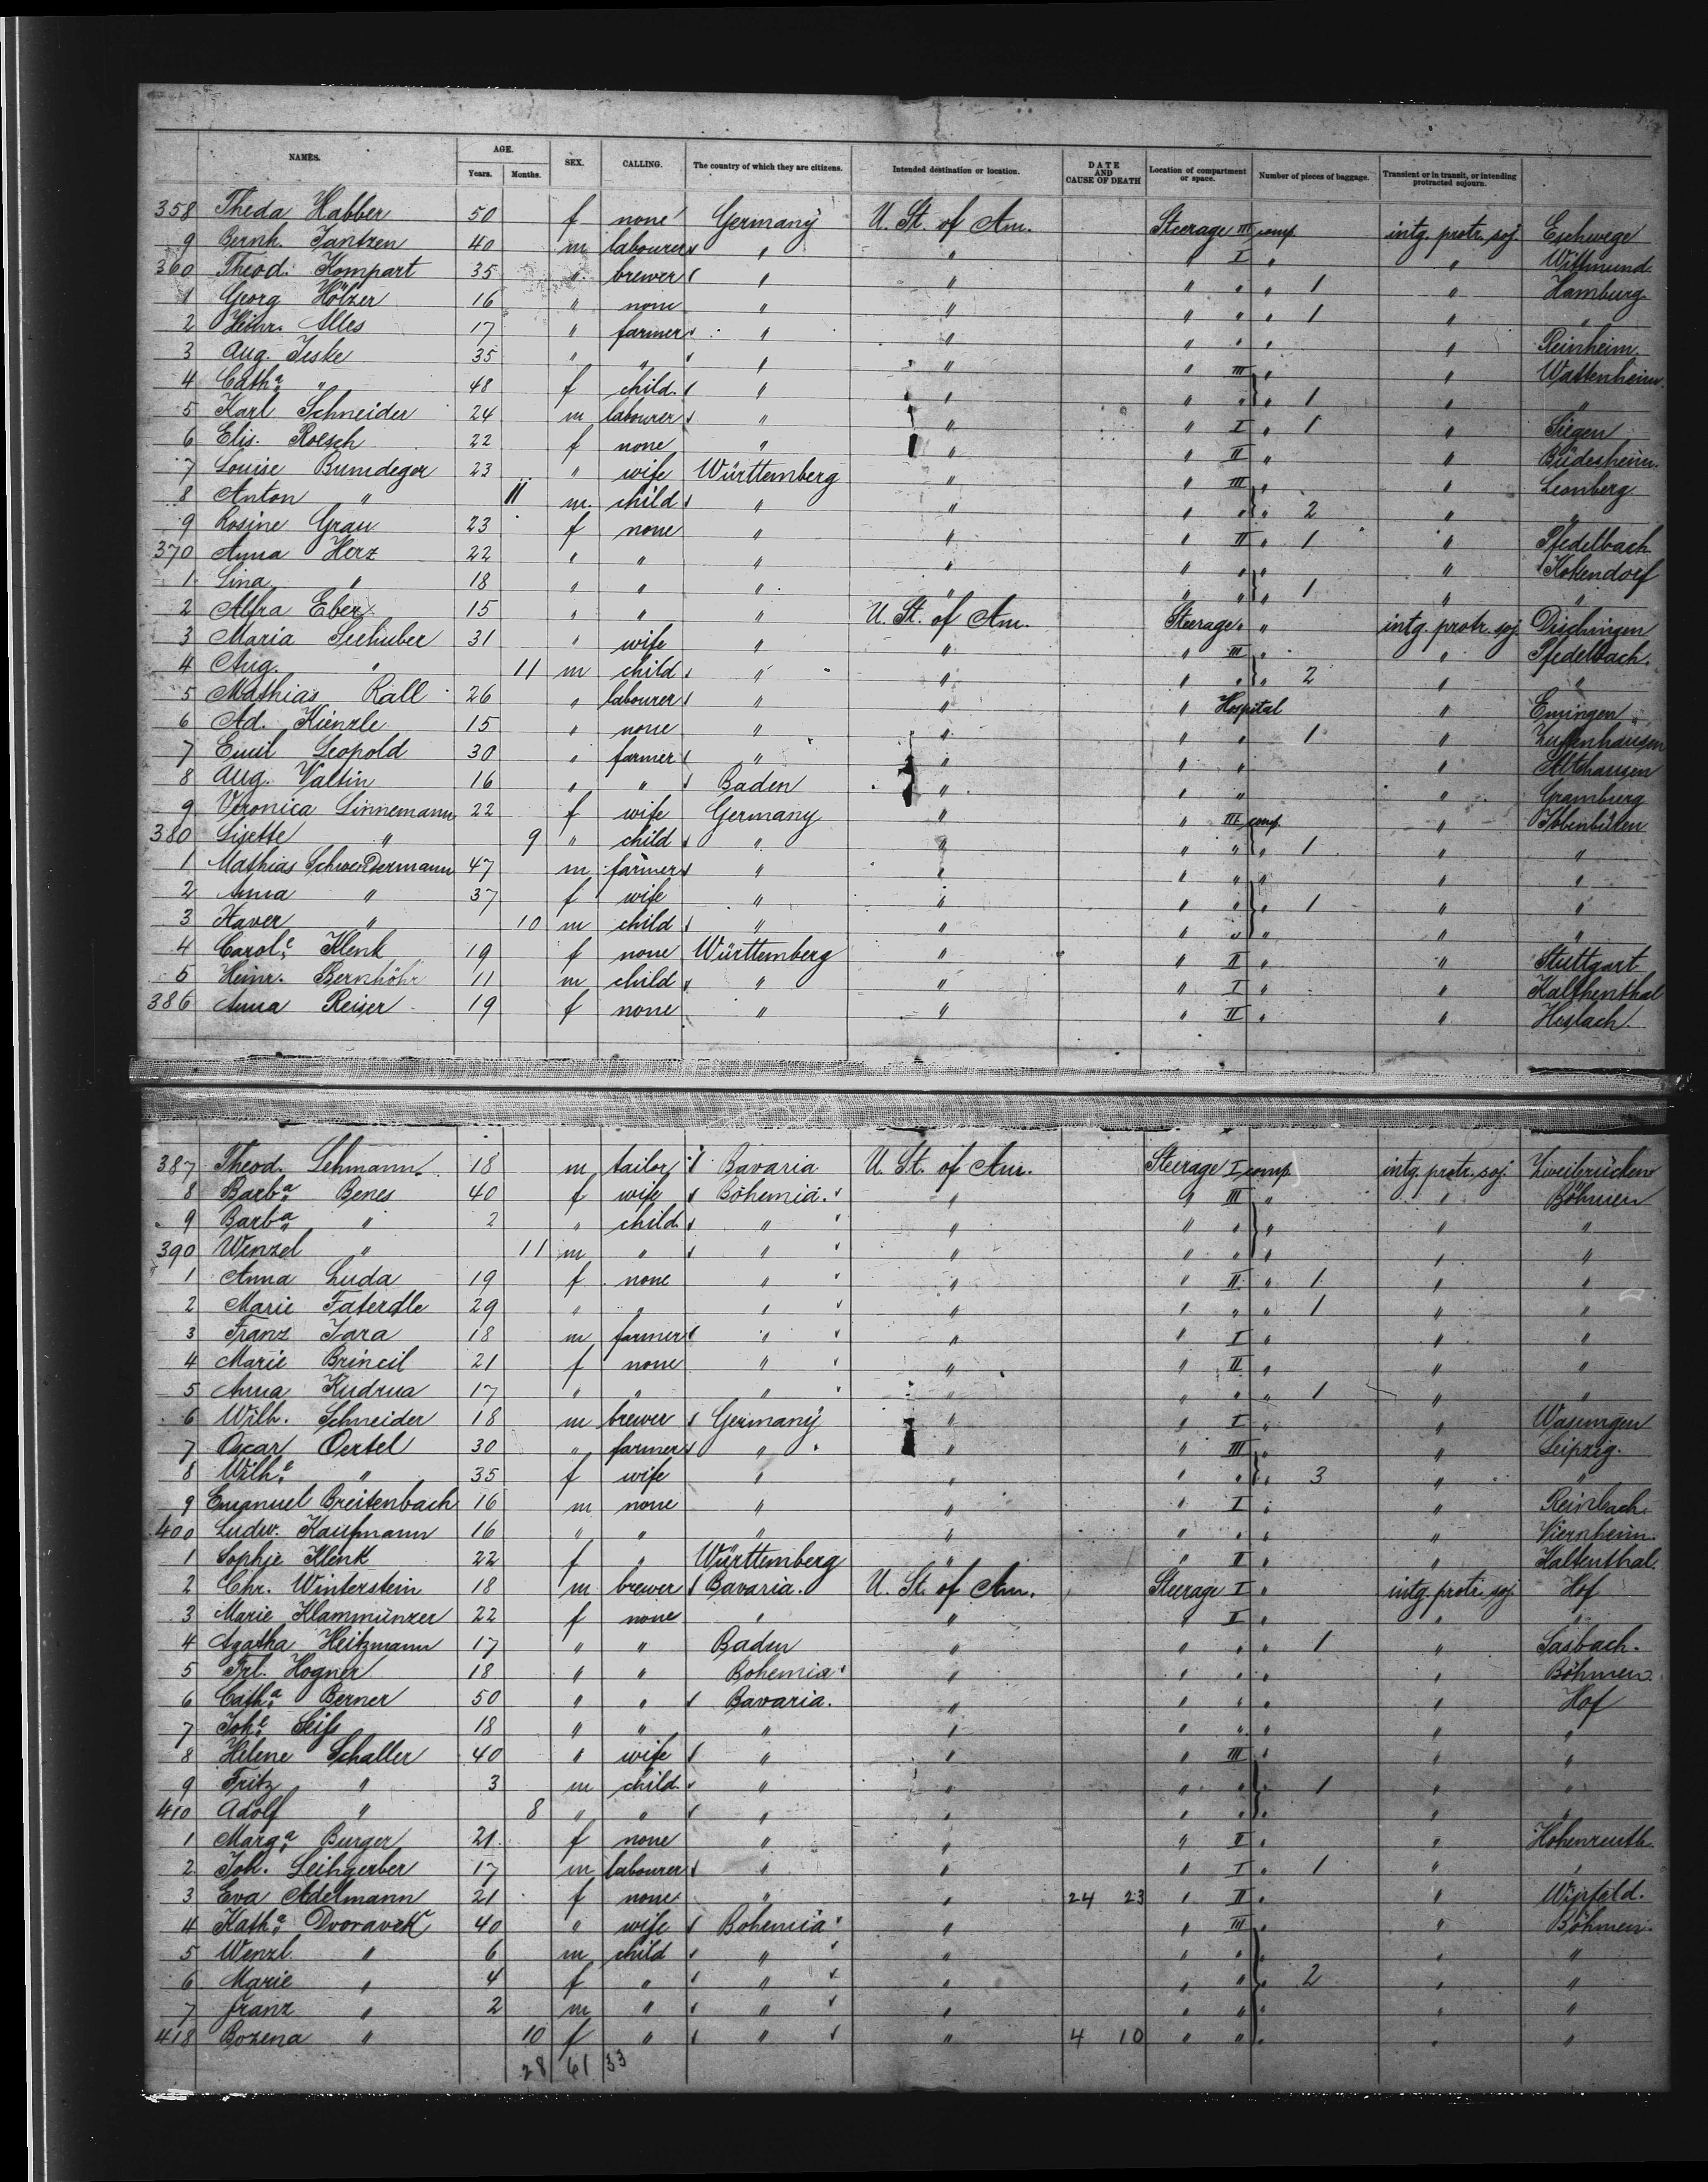 NAMES. AGE. Years. Months. SEX. CALLING. The country of which they are citizens. Intended destination or location. DATE AND CAUSE OF DEATH Location of compartment or space. Number of pieces of baggage. Transient or in transit, or intending protracted sojourn.
358 Theda Habber 50 f none Germany U. St. of Am. Steerage III comp. intg. protr. soj. Eschwege
9 Bernh. Jantzen 40 m labourer " " " I " " Wittmund
360 Theod. Kompart 35 " brewer " " " " " 1 " Hamburg
1 Georg Hölzer 16 " none " " " " " 1 " "
2 Heinr. Alles 17 " farmer " " " " " " Reinheim
3 Aug. Jeske 35 " " " " " III " " Wattenheim
4 Cath.a " 48 f child " " " " " 1 " "
5 Karl Schneider 24 m labourer " " " I " 1 " Siegen
6 Elis. Roesch 22 f none " " " II " " Büdesheim
7 Louise Bumdeger 23 " wife Württemberg " " III " " Leonberg
8 Anton " 11 m child " " " " " 2 " "
9 Rosine Grau 23 f none " " " II " 1 " Pfedelbach
370 Anna Herz 22 " " " " " " " " Kokendorf
1 Lina " 18 " " " " " " " 1 " "
2 Alfra Eber 15 " " " U. St. of Am. Steerage " " intg. protr. soj. Dischingen
3 Maria Seehuber 31 " wife " " " III " " Pfedelbach
4 Aug. " 11 m child " " " " " 2 " "
5 Mathias Rall 26 " labourer " " " Hospital " Eningen
6 Ad. Kienzle 15 " none " " " " 1 " Zuffenhausen
7 Emil Leopold 30 " farmer " " " " " Altshausen
8 Aug. Valtin 16 " " Baden " " " " Gramburg
9 Veronica Linnemann 22 f wife Germany " " III comp. " Ibbinbüren
380 Lisette " 9 " child " " " " " 1 " "
1 Mathias Schwendermann 47 m farmer " " " " " " "
2 Anna " 37 f wife " " " " " 1 " "
3 Xaver " 10 m child " " " " " " "
4 Carol.e Klenk 19 f none Württemberg " " II " " Stuttgart
5 Heinr. Bernhöhr 11 m child " " " I " " Kalthenthal
386 Anna Reiser 19 f none " " " II " " Heslach
387 Theod. Lehmann 18 m tailor Bavaria U. St. of Am. Steerage I comp. intg. protr. soj. Zweibrücken
8 Barb.a Benes 40 f wife Böhemia " " III " " Böhmen
9 Barb.a " 2 " child " " " " " " "
390 Wenzel " 11 m " " " " " " " "
1 Anna Luda 19 f none " " " II " 1 " "
2 Marie Faterdle 29 " " " " " " " 1 " "
3 Franz Jara 18 m farmer " " " I " " "
4 Marie Brincil 21 f none " " " II " " "
5 Anna Kudrna 17 " " " " " " " 1 " "
6 Wilh. Schneider 18 m brewer Germany " " I " " Wasungen
7 Oscar Oertel 30 " farmer " " " III " " Leipzig
8 Wilh.e " 35 f wife " " " " " 3 " "
9 Emanuel Breitenbach 16 m none " " " I " " Reinbach
400 Ludw. Kaufmann 16 " " " " " " " " Viernheim
1 Sophie Klenk 22 f " Württemberg " " II " " Kaltenthal
2 Chr. Winterstein 18 m brewer Bavaria. U. St. of Am. Steerage I " intg. protr. soj. Hof
3 Marie Klammünzer 22 f none " " " I " " "
4 Agatha Heitzmann 17 " " Baden " " " " 1 " Sasbach
5 Frl. Hogner 18 " " Bohemia " " " " " Böhmen
6 Cath.a Berner 50 " " Bavaria. " " " " " Hof
7 Joh.e Seifs 18 " " " " " " " " "
8 Helene Schaller 40 " wife " " " III " " "
9 Fritz " 3 m child " " " " " 1 " "
410 Adolf " 8 " " " " " " " " "
1 Marg.a Burger 21 f none " " " II " " Hohenreuth
2 Joh. Leihgerber 17 m labourer " " " I " 1 " "
3 Eva Adelmann 21 f none " " 24 23 " II " " Wipfeld.
4 Kath.a Dvoravek 40 " wife Bohemia " " III " " Böhmen
5 Wenzl. " 6 m child " " " " " " "
6 Marie " 4 f " " " " " " 2 " "
7 Franz " 2 m " " " " " " " "
418 Bozena " 10 f " " " 4 10 " " " " "
28 61 33